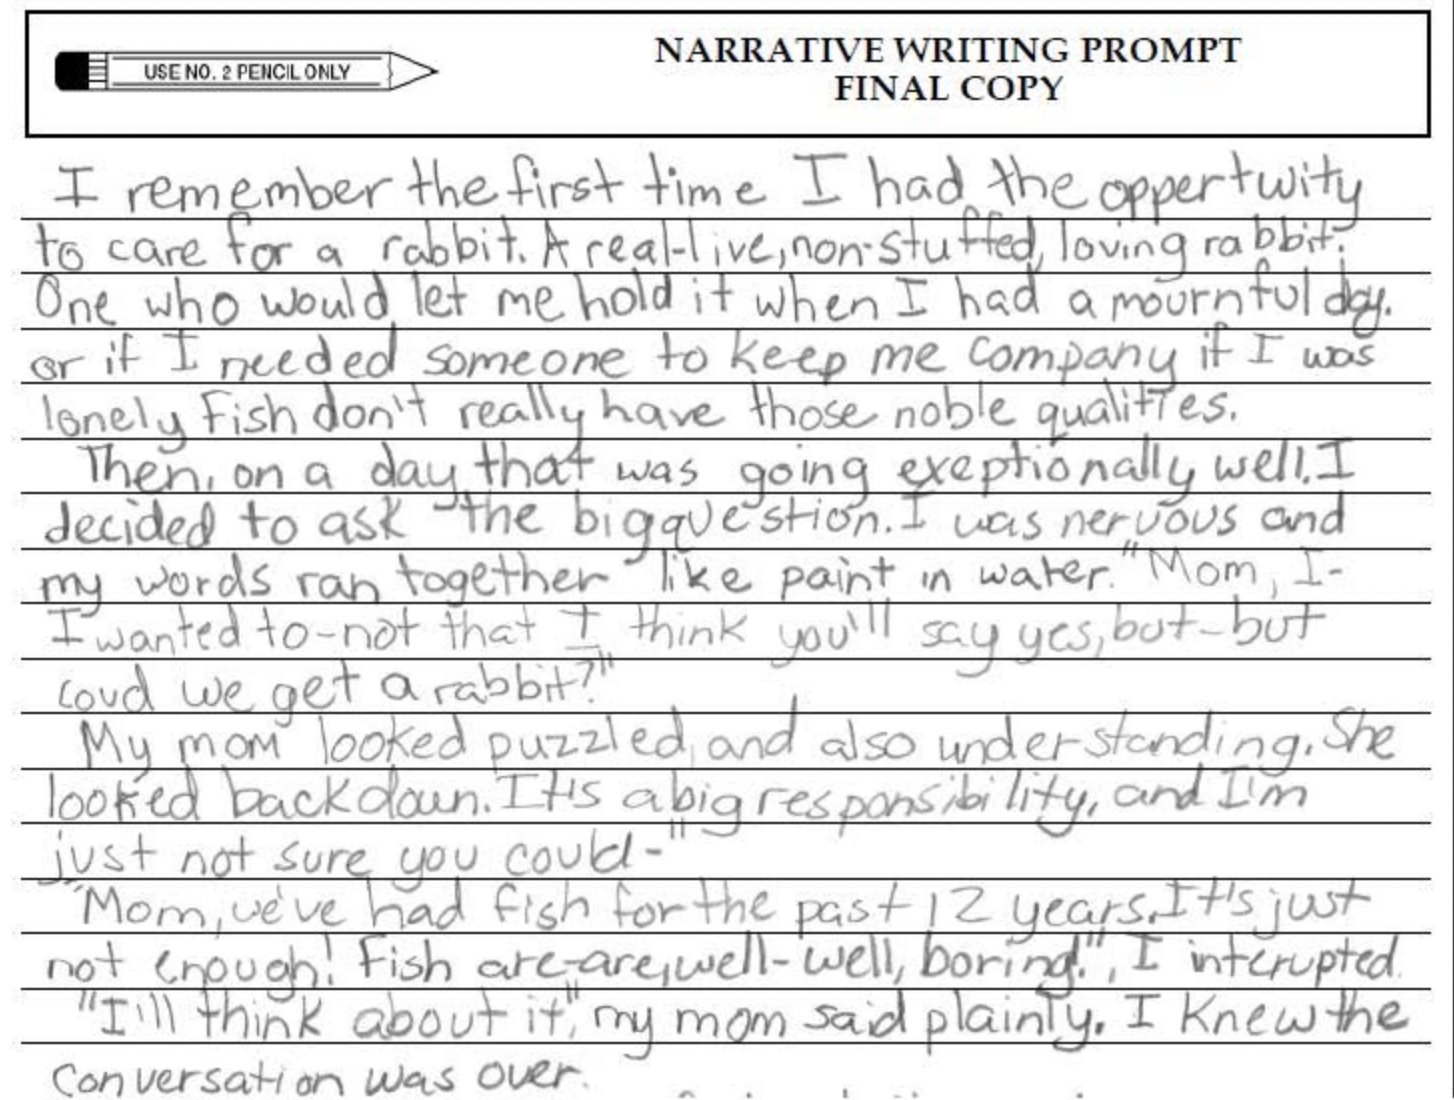 USE NO. 2 PENCIL ONLY
NARRATIVE WRITING PROMPT
FINAL COPY
I remember the first time I had the oppertwity
to care for a rabbit. A real-live, non-stuffed, loving rabbit.
One who would let me hold it when I had a mournful day.
or if I needed someone to keep me company if I was
lonely Fish don't really have those noble qualities.
Then, on a day that was going exeptionally well, I
decided to ask the big question. I was nervous and
my words ran together like paint in water. "Mom, I-
I wanted to-not that I think you'll say yes, but-but
coud we get a rabbit?"
My mom looked puzzled, and also understanding. She
looked back down. It's a big responsibility, and I'm
just not sure you could-"
"Mom, we've had fish for the past 12 years. It's just
not enough! Fish are-are, well-well, boring!", I interupted.
"I'll think about it," my mom said plainly. I knew the
conversation was over.